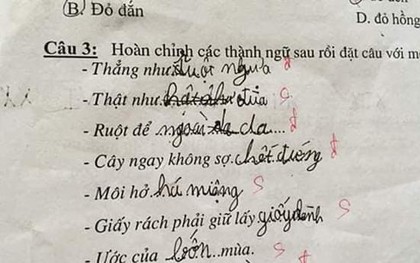 B. Đỏ dắn
D. đỏ hồng
Câu 3: Hoàn chỉnh các thành ngữ sau rồi đặt câu với
- Thẳng như ruột ngựa đ
- Thật như đũa S
- Ruột để ngoài da đ
- Cây ngay không sợ chết đứng đ
- Môi hở há miệng S
- Giấy rách phải giữ lấy giấy lành S
- Ước của bốn mùa. S